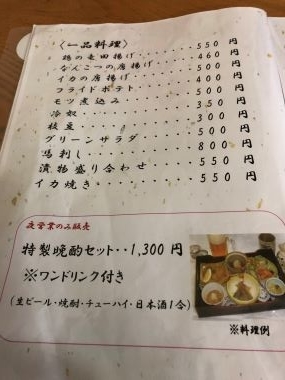 〈一品料理〉
鶏の竜田揚げ････････550 円
なんこつの唐揚げ････････460 円
イカの唐揚げ････････500 円
フライドポテト････････400 円
モツ煮込み････････500 円
冷奴････････350 円
枝豆････････300 円
グリーンサラダ････････500 円
馬刺し････････800 円
漬物盛り合わせ････････550 円
イカ焼き････････550 円
夜営業のみ販売
特製晩酌セット･･1,300 円
※ワンドリンク付き
(生ビール・焼酎・チューハイ・日本酒1合)
※料理例